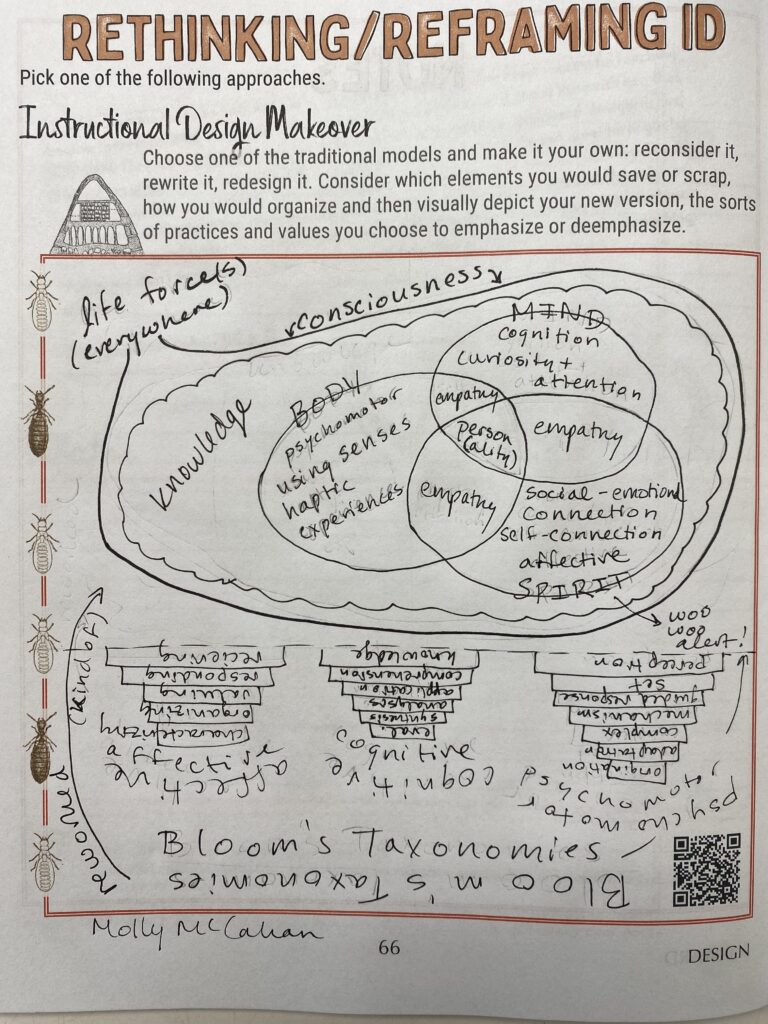 RETHINKING/REFRAMING ID
Pick one of the following approaches.
Instructional Design Makeover
Choose one of the traditional models and make it your own: reconsider it,
rewrite it, redesign it. Consider which elements you would save or scrap,
how you would organize and then visually depict your new version, the sorts
of practices and values you choose to emphasize or deemphasize.
life force(s)
(everywhere)
consciousness
knowledge
MIND
cognition
curiosity +
attention
BODY
psychomotor
using senses
haptic
experiences
empathy
person
(ality)
empathy
empathy
social-emotional
connection
self-connection
affective
SPIRIT
woo
woo
alert!
reworked (kind of)
recieving
responding
valuing
organizing
characterizing
affective
affective
knowledge
comprehension
application
analysis
synthesis
eval.
cognitive
cognitive
perception
set
guided response
mechanism
complex
adaptation
origination
psychomotor
psychomotor
Bloom's Taxonomies
Bloom's Taxonomies
Molly McCahan
66
DESIGN